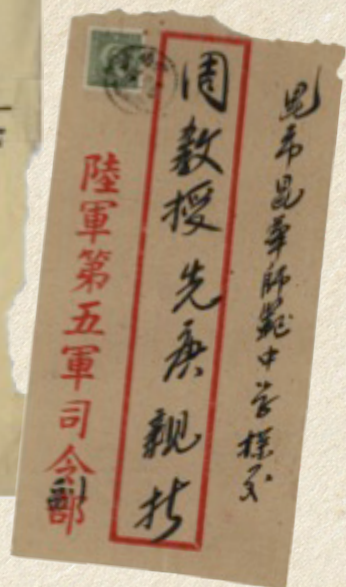 昆市昆華師範中学探交
周教授先庚親拆
陸軍第五軍司令部